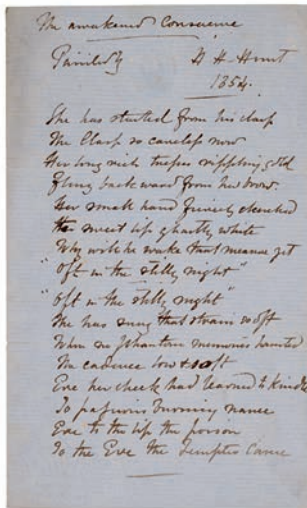 The awakened Conscience
Painted by H H-Hunt
1854.
She has started from his clasp
The Clasp so careless now
Her long rich tresses rippling gold
Flung backward from her brow.
Her small hand fiercely clenched
Her sweet lip ghastly white
Why will he wake that measure yet
"Oft in the stilly night"
"Oft in the stilly night"
She has sung that strain so oft
When no phantom memories haunted
The cadence low & soft
Ere her cheek had learned to kindle
To passion's burning name
Ere to the lip the poison
To the Eve the Tempter Came